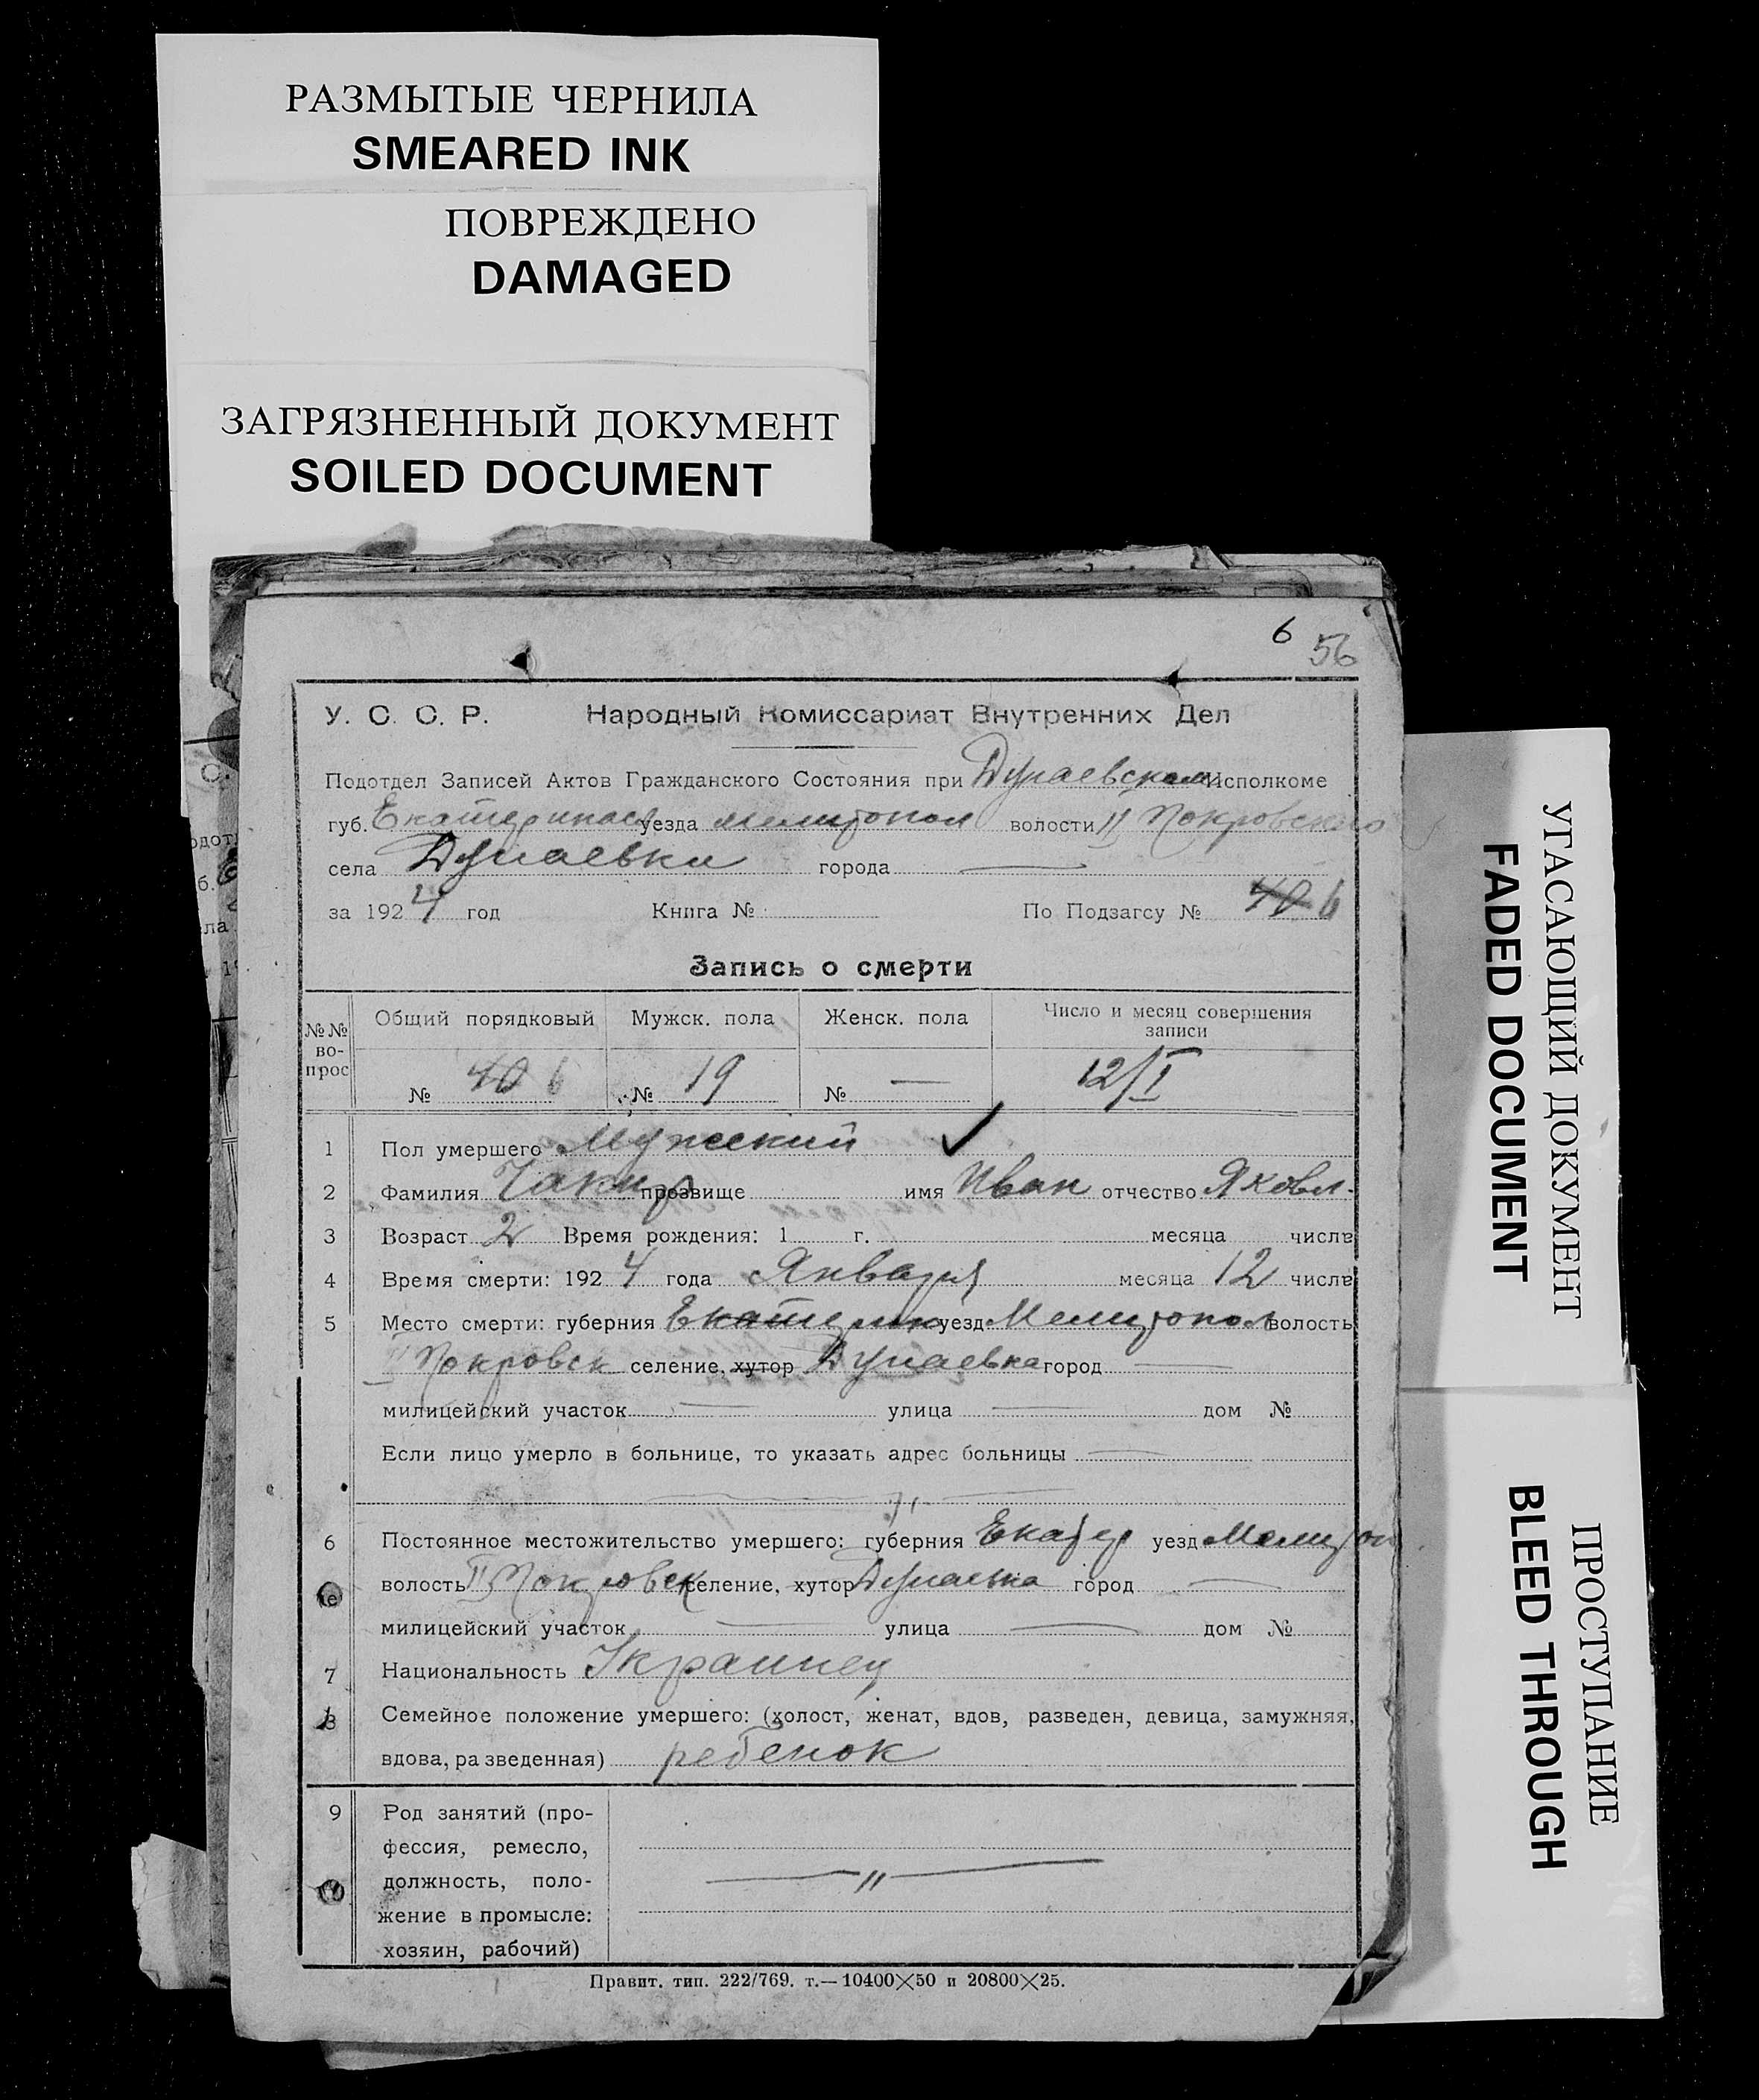 РАЗМЫТЫЕ ЧЕРНИЛА
SMEARED INK
ПОВРЕЖДЕНО
DAMAGED
ЗАГРЯЗНЕННЫЙ ДОКУМЕНТ
SOILED DOCUMENT
6 56
У. С. С. Р. Народный Комиссариат Внутренних Дел
Подотдел Записей Актов Гражданского Состояния при Дунаевском Исполкоме
губ. Екатеринос уезда Мелитопол волости II Покровского
села Дунаевки города —
за 1924 год Книга № По Подзагсу № 6
Запись о смерти
№№ вопрос Общий порядковый Мужск. пола Женск. пола Число и месяц совершения записи
№ 6 № 19 № — 12/I
1 Пол умершего Мужеский ✓
2 Фамилия Чакир прозвище имя Иван отчество Яковл.
3 Возраст 2 Время рождения: 1 г. месяца числа
4 Время смерти: 1924 года Января месяца 12 числа
5 Место смерти: губерния Екатерино уезд Мелитопол волость
II Покровск селение, хутор Дунаевка город —
милицейский участок — улица — дом №
Если лицо умерло в больнице, то указать адрес больницы —
6 Постоянное местожительство умершего: губерния Екатер уезд Мелитоп
волость II Покровск селение, хутор Дунаевка город —
милицейский участок — улица — дом №
7 Национальность Украинец
8 Семейное положение умершего: (холост, женат, вдов, разведен, девица, замужняя,
вдова, разведенная) ребенок
9 Род занятий (про-
фессия, ремесло,
должность, поло- — " —
жение в промысле:
хозяин, рабочий)
Правит. тип. 222/769. т.—10400×50 и 20800×25.
УГАСАЮЩИЙ ДОКУМЕНТ
FADED DOCUMENT
ПРОСТУПАНИЕ
BLEED THROUGH